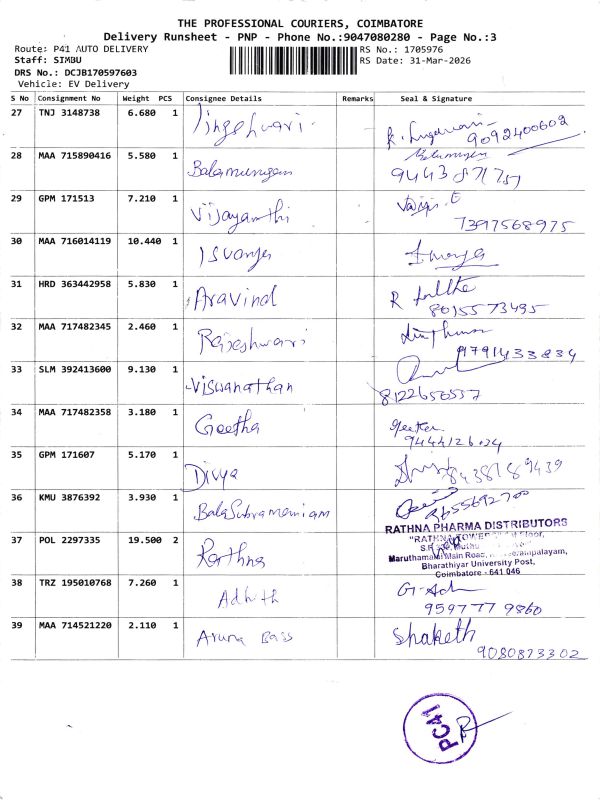 THE PROFESSIONAL COURIERS, COIMBATORE
Delivery Runsheet - PNP - Phone No.:9047080280 - Page No.:3
Route: P41 AUTO DELIVERY
RS No.: 1705976
Staff: SIMBU
RS Date: 31-Mar-2026
DRS No.: DCJB170597603
Vehicle: EV Delivery
S No Consignment No Weight PCS Consignee Details Remarks Seal & Signature
27 TNJ 3148738 6.680 1
9092400602
28 MAA 715890416 5.580 1 Balamurugan
29 GPM 171513 7.210 1 Vijayanthi
7397568975
30 MAA 716014119 10.440 1
31 HRD 363442958 5.830 1 Aravind R
8015573495
32 MAA 717482345 2.460 1 Rajeshwari
9791433834
33 SLM 392413600 9.130 1 Viswanathan
34 MAA 717482358 3.180 1 Geetha Geetha
35 GPM 171607 5.170 1 Divya
36 KMU 3876392 3.930 1 BalaSubramaniam
37 POL 2297335 19.500 2 Rathna
RATHNA PHARMA DISTRIBUTORS
"RATHNA TOWER" Floor,
Maruthamalai Main Road,
Bharathiyar University Post,
Coimbatore - 641 046
38 TRZ 195010768 7.260 1
9597779860
39 MAA 714521220 2.110 1 Aruna Bass Shaketh
9080873302
PC41